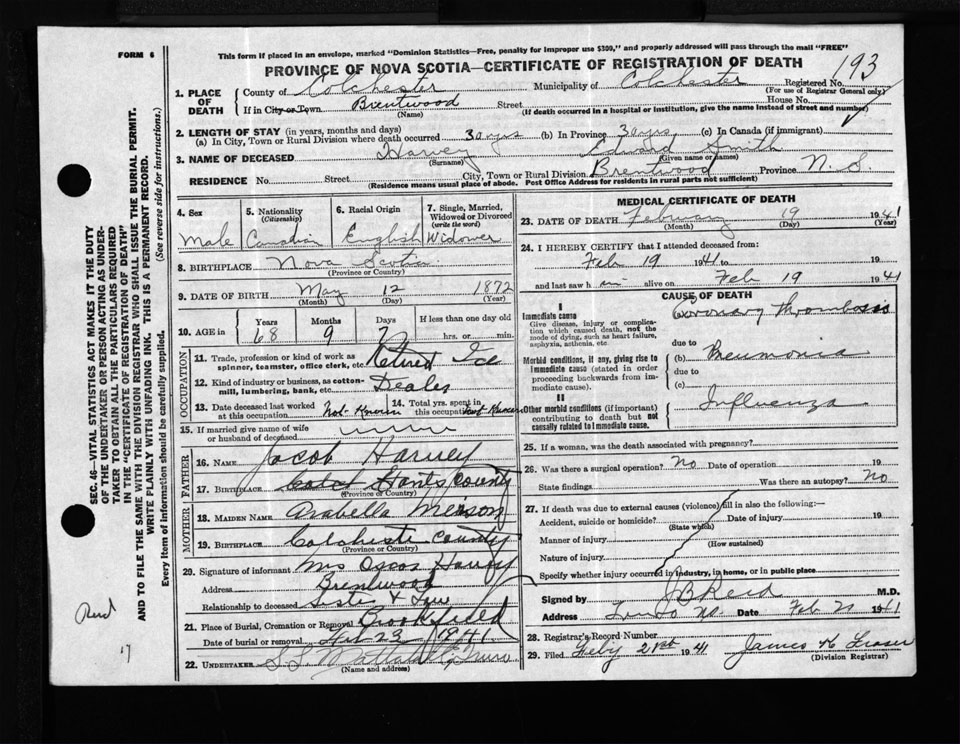 FORM 6
This form if placed in an envelope, marked "Dominion Statistics—Free, penalty for improper use $300," and properly addressed will pass through the mail "FREE"
PROVINCE OF NOVA SCOTIA—CERTIFICATE OF REGISTRATION OF DEATH
193
1. PLACE OF DEATH County of Colchester Municipality of Colchester Registered No.
(For use of Registrar General only)
If in City or Town Brentwood Street House No.
(Name) (If death occurred in a hospital or institution, give the name instead of street and number)
2. LENGTH OF STAY (in years, months and days)
(a) In City, Town or Rural Division where death occurred 30 yrs (b) In Province 30 yrs (c) In Canada (if immigrant)
3. NAME OF DECEASED Harvey Edward Smith
(Surname) (Given name or names)
RESIDENCE No. Street City, Town or Rural Division Brentwood Province N.S.
(Residence means usual place of abode. Post Office Address for residents in rural parts not sufficient)
4. Sex 5. Nationality (Citizenship) 6. Racial Origin 7. Single, Married, Widowed or Divorced (write the word)
Male Canadian English Widower
8. BIRTHPLACE Nova Scotia
(Province or Country)
9. DATE OF BIRTH May 12 1872
(Month) (Day) (Year)
10. AGE in Years Months Days If less than one day
68 9 7 hrs. or min.
OCCUPATION
11. Trade, profession or kind of work as spinner, teamster, office clerk, etc. Retired Ice
12. Kind of industry or business, as cotton-mill, lumbering, bank, etc. Dealer
13. Date deceased last worked at this occupation Not Known 14. Total yrs. spent in this occupation Not Known
15. If married give name of wife or husband of deceased
FATHER
16. NAME Jacob Harvey
17. BIRTHPLACE Hants County
(Province or Country)
MOTHER
18. MAIDEN NAME Arabella
19. BIRTHPLACE Colchester County
(Province or Country)
20. Signature of informant Mrs Oscar Harvey
Address Brentwood
Relationship to deceased Sister + Law
21. Place of Burial, Cremation or Removal Brookfield
Date of burial or removal Feb 23 1941
22. UNDERTAKER Truro
(Name and address)
MEDICAL CERTIFICATE OF DEATH
23. DATE OF DEATH February 19 1941
(Month) (Day) (Year)
24. I HEREBY CERTIFY that I attended deceased from:
Feb 19 1941 to Feb 19 1941
and last saw h im alive on
CAUSE OF DEATH
I
Immediate cause
Give disease, injury or complication which caused death, not the mode of dying, such as heart failure, asphyxia, asthenia, etc.
Coronary Thrombosis
due to
Morbid conditions, if any, giving rise to immediate cause (stated in order proceeding backwards from immediate cause).
(b) Pneumonia
due to
(c)
II
Other morbid conditions (if important) contributing to death but not causally related to immediate cause.
Influenza
25. If a woman, was the death associated with pregnancy?
26. Was there a surgical operation? No Date of operation 19
State findings Was there an autopsy? No
27. If death was due to external causes (violence) fill in also the following:—
Accident, suicide or homicide? Date of injury 19
(State which)
Manner of injury
(How sustained)
Nature of injury
Specify whether injury occurred in industry, in home, or in public place
Signed by J B Reid M.D.
Address Truro NS Date Feb 21 1941
28. Registrar's Record Number
29. Filed Feby 21st 1941 James K Fraser
(Division Registrar)
SEC. 46—VITAL STATISTICS ACT MAKES IT THE DUTY
OF THE UNDERTAKER OR PERSON ACTING AS UNDER-
TAKER TO OBTAIN ALL THE PARTICULARS REQUIRED
IN THE "CERTIFICATE OF REGISTRATION OF DEATH"
AND TO FILE THE SAME WITH THE DIVISION REGISTRAR WHO SHALL ISSUE THE BURIAL PERMIT.
WRITE PLAINLY WITH UNFADING INK. THIS IS A PERMANENT RECORD.
Every item of information should be carefully supplied. (See reverse side for instructions.)
Reid
17